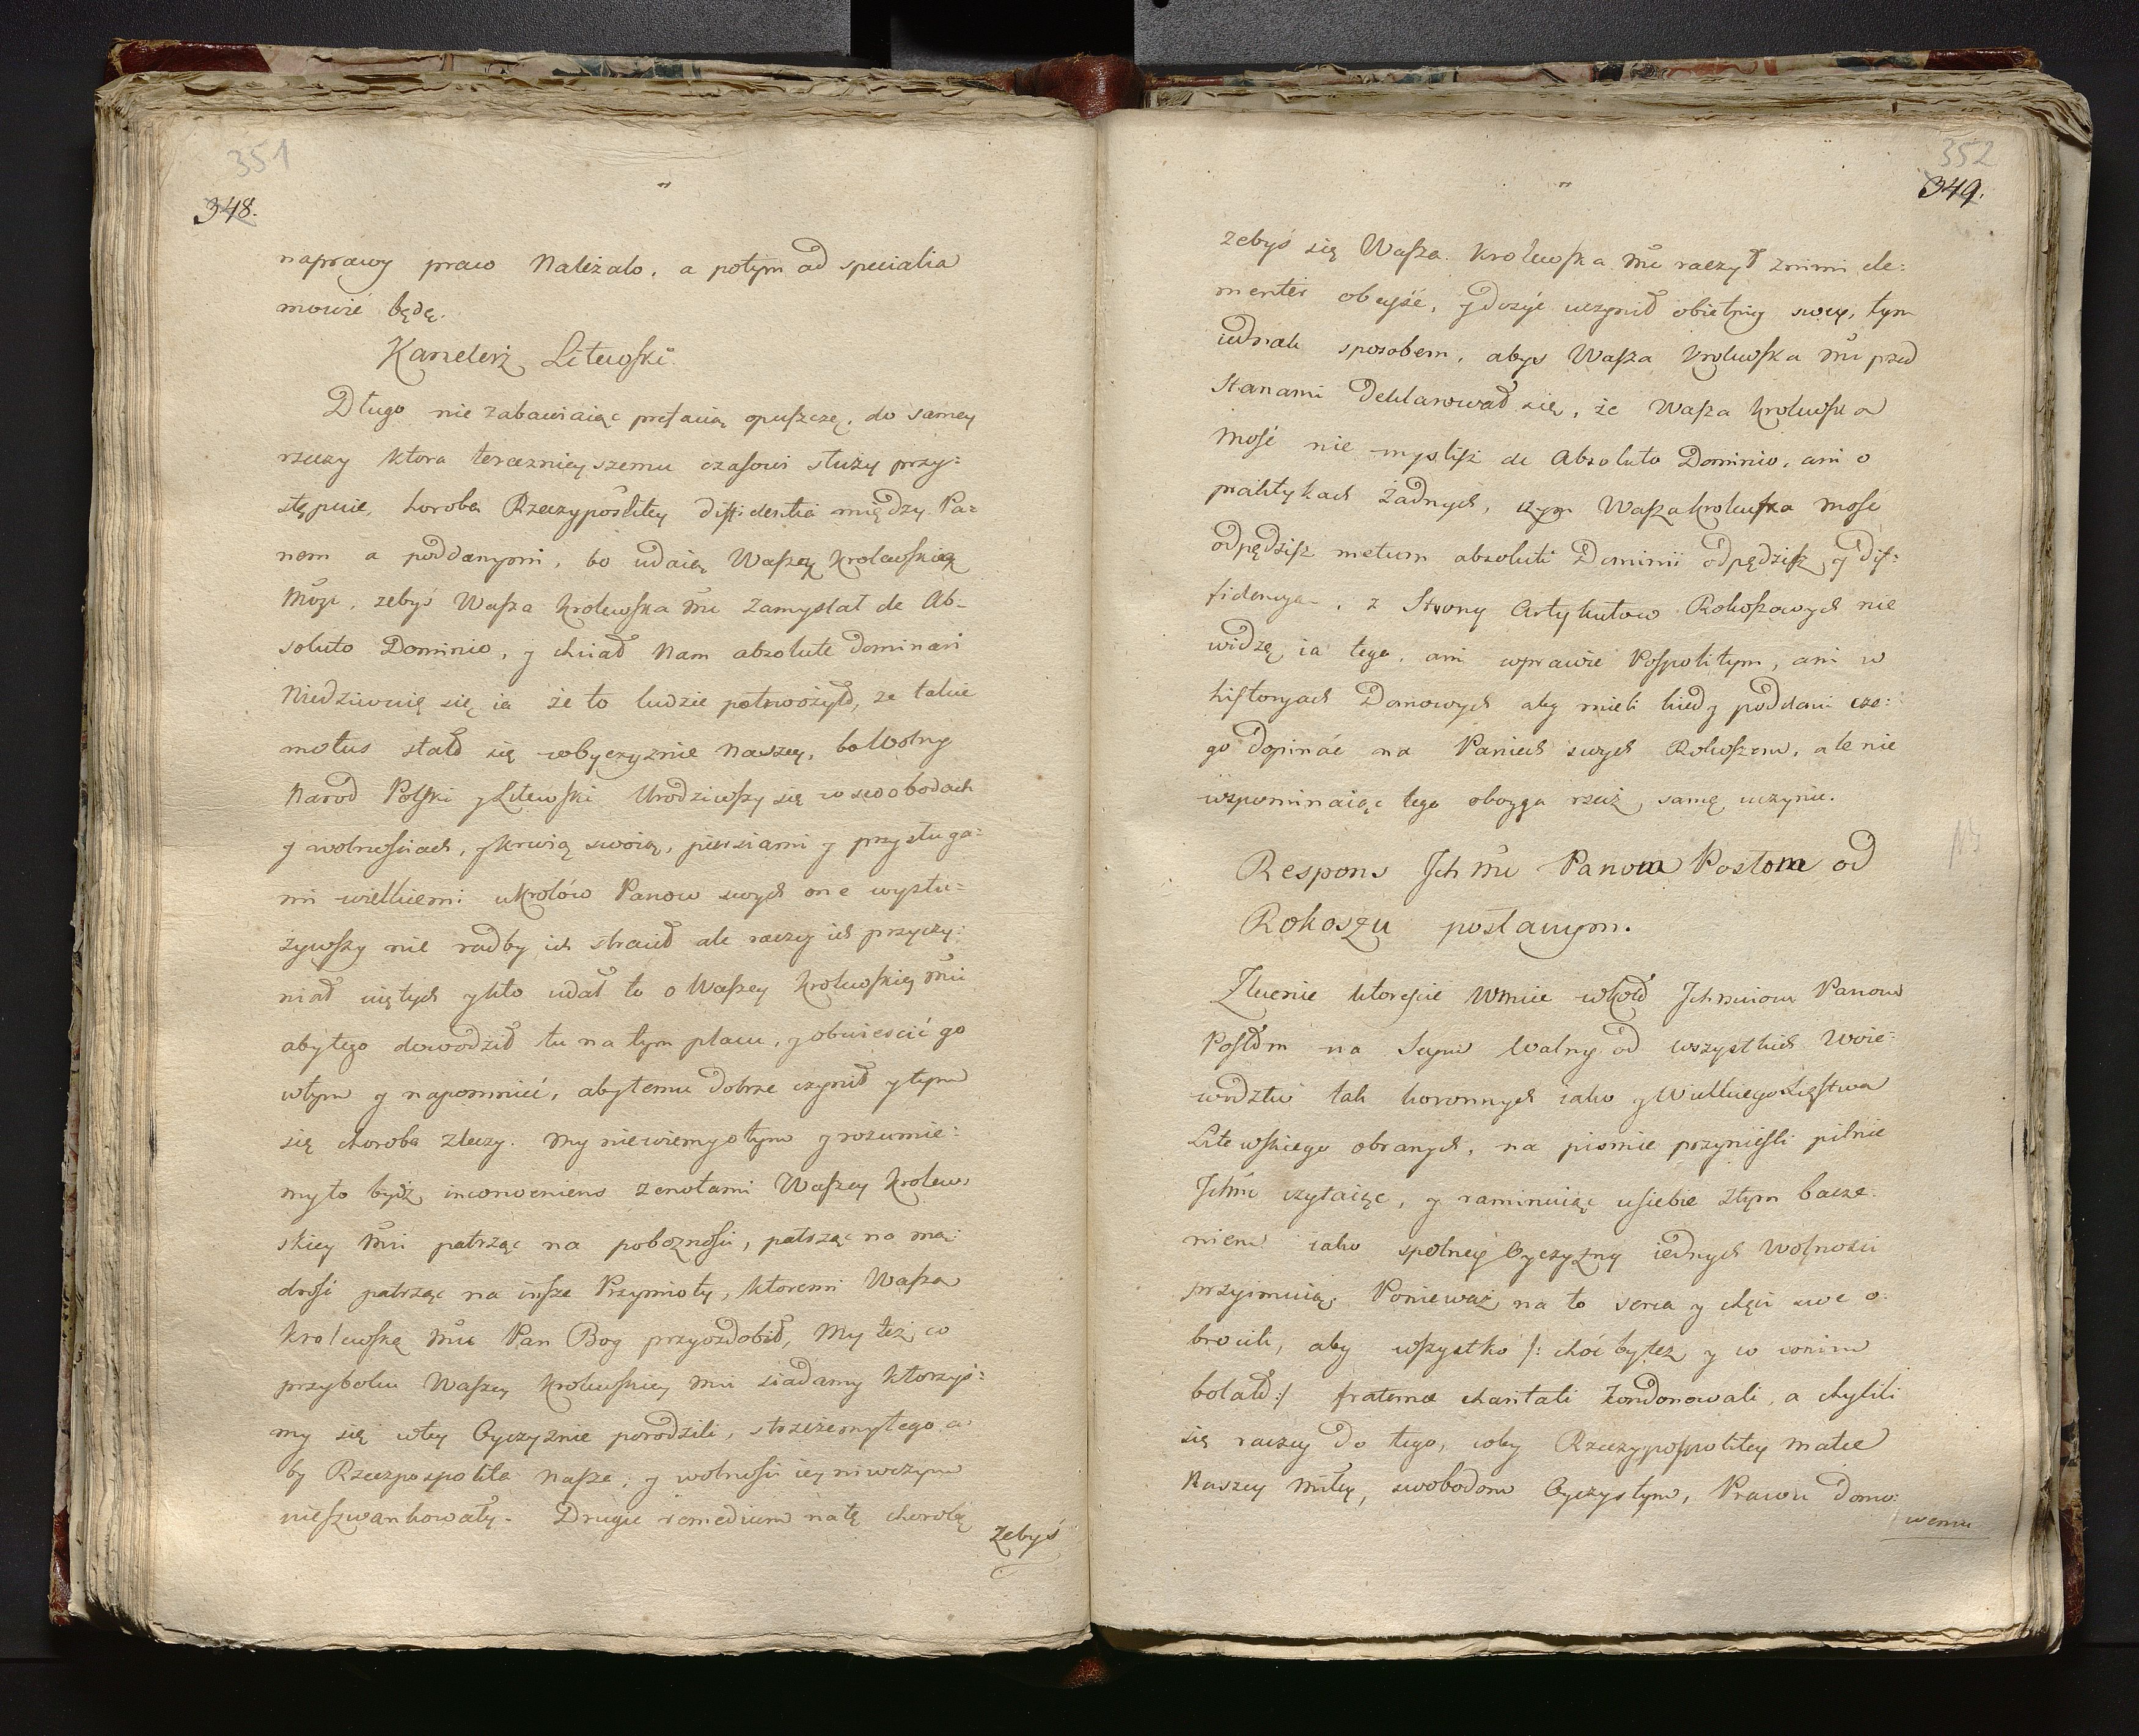 351
348.
naprawy praw Należało, a potym ad specialia
mowić będę.
Kanclerz Litewski.
Długo nie zabawiaiąc prefacią opuszczę, do samey
rzeczy ktora teraznieyszemu czasowi służy przy:
stępuie, horoba Rzeczypospolitey diffidentia między Pa:
nem a poddanymi, bo udaią Waszą Krolewską
Mść, zebyś Wasza Krolewska Mć zamyslał de Ab-
soluto Dominio, y chciał Nam absolute dominari
Niedziwuię się ia że to ludzie potrwożyło, ze takie
motus stało się w Oyczyznie Naszey, bo Wolny
Narod Polski y Litewski Urodziwszy się w swobodach
y wolnościach, y krwią swoią, piersiami y przysługa:
mi wielkiemi u Krolów Panow swych one wysłu:
żywszy nie radby ich stracił ale raczey ich przyczy:
niał
y kto udał to o Waszey Krolewskiey Mći
aby tego dowodził tu na tym placu, y obwiescić go
w tym y napomnieć, aby temu dobrze czynił y tym
się choroba zleczy. My nie wiemy o tym y rozumie:
my to bydz inconveniens z cnotami Waszey Krolew:
skiey Mći patrząc na pobożność, patrząc na mą:
drość patrząc na insze Przymioty, ktoremi Wasza
Krolewską Mść Pan Bog przyozdobił, My też co
przyboku Waszey Krolewskiey Mći siadamy ktorzyś:
my się w tey Oyczyznie porodzili, strzeżemy tego a:
by Rzeczpospolita Nasza, y wolności iey niwczym
nieszwankowały. Drugie remedium na tę chorobę
Zebyś
352
349.
zebyś się Wasza Krolewska Mć raczył z nimi cle:
menter obeyść, y dosyć uczynił obietnicy swey, tym
iednak sposobem, abyś Wasza Krolewska Mć przed
Stanami Deklarował się, że Wasza Krolewska
Mość nie myslisz de Absoluto Dominio, ani o
praktykach Żadnych, czym Wasza Krolewska Mość
odpędzisz metum absoluti Dominii odpędzisz y dif:
fidencyą, z Strony Artykułow Rokoszowych nie
widzę ia tego, ani w prawie Pospolitym, ani w
historyach Domowych aby mieli kiedy poddani cze:
go dopinać na Paniech swych Rokoszem, ale nie
wspominaiąc tego oboyga rzecz samę uczynić.
Respons Ich Mć Panom Posłom od
Rokoszu posłanym.
Zlecenie ktoreście Wmcie w koło Ichmciow Panow
Posłom na Seym Walny od wszystkich Woie:
wodztw tak koronnych iako y Wielkiego Xięstwa
Litewskiego obranych, na pismie przynieśli pilnie
Ichmć czytaiąc, y raminuiąc u siebie z tym bacze:
niem iako spolney Oyczyzny iednych Wolności
przyimuią. Ponieważ na to serca y chęci swe o:
brocili, aby wszystko /: choć by też y w czim
bolało :/ fraternae charitati kondonowali, a chylili
się raczey do tego, coby Rzeczypospolitey matce
Naszey miłey, swobodom Oyczystym, Prawu Domo:
wemu